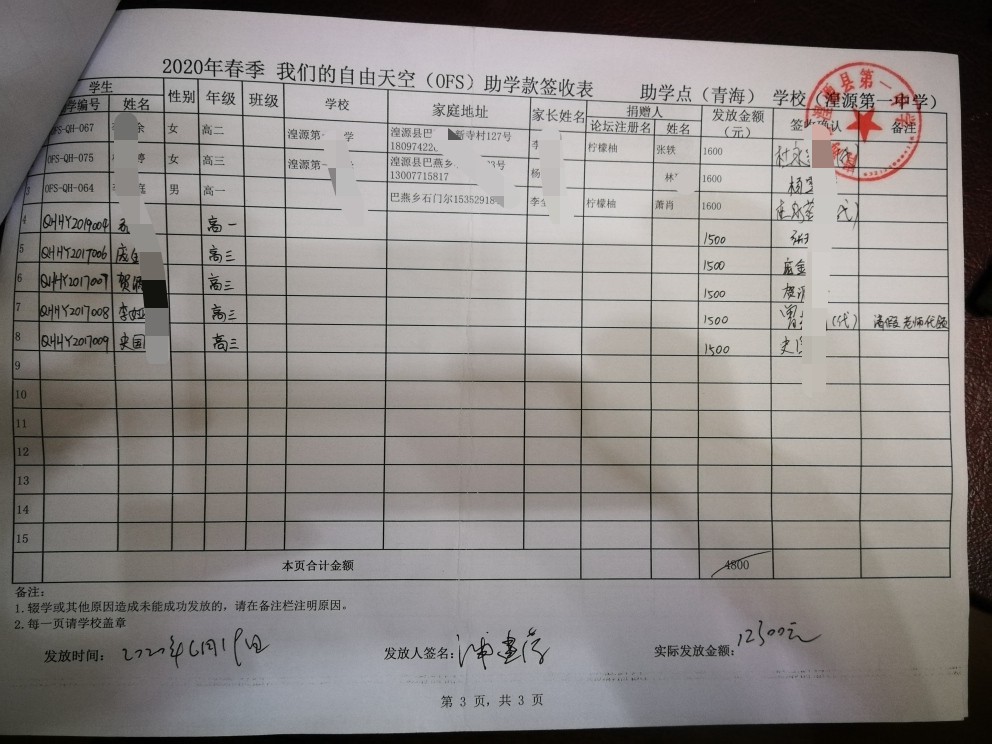 2020年春季 我们的自由天空（OFS）助学款签收表 助学点（青海） 学校（湟源第一中学）
学生 性别 年级 班级 学校 家庭地址 家长姓名 捐赠人 发放金额（元） 签收确认 备注
学编号 姓名 论坛注册名 姓名
OFS-QH-067 余 女 高二 湟源第一 学 湟源县巴 新寺村127号 李 柠檬柚 张轶 1600
18097422
OFS-QH-075 婷 女 高三 湟源第一 湟源县巴燕乡 3号 杨 林 1600 杨
13007715817
3 OFS-QH-064 庭 男 高一 巴燕乡石门尔15352918 李 柠檬柚 萧肖 1600 （代）
4 QHHY2019004 高一 1500
5 QHHY2017006 庞金 高三 1500 庞金
6 QHHY2017007 贺 高三 1500 贺
7 QHHY2017008 李娅 高三 1500 曾 （代） 请假 老师代领
8 QHHY2017009 史国 高三 1500 史
9
10
11
12
13
14
15
本页合计金额 4800
备注：
1.辍学或其他原因造成未能成功发放的，请在备注栏注明原因。
2.每一页请学校盖章
发放时间：2020年6月19日 发放人签名： 实际发放金额：12300元
第 3 页，共 3 页